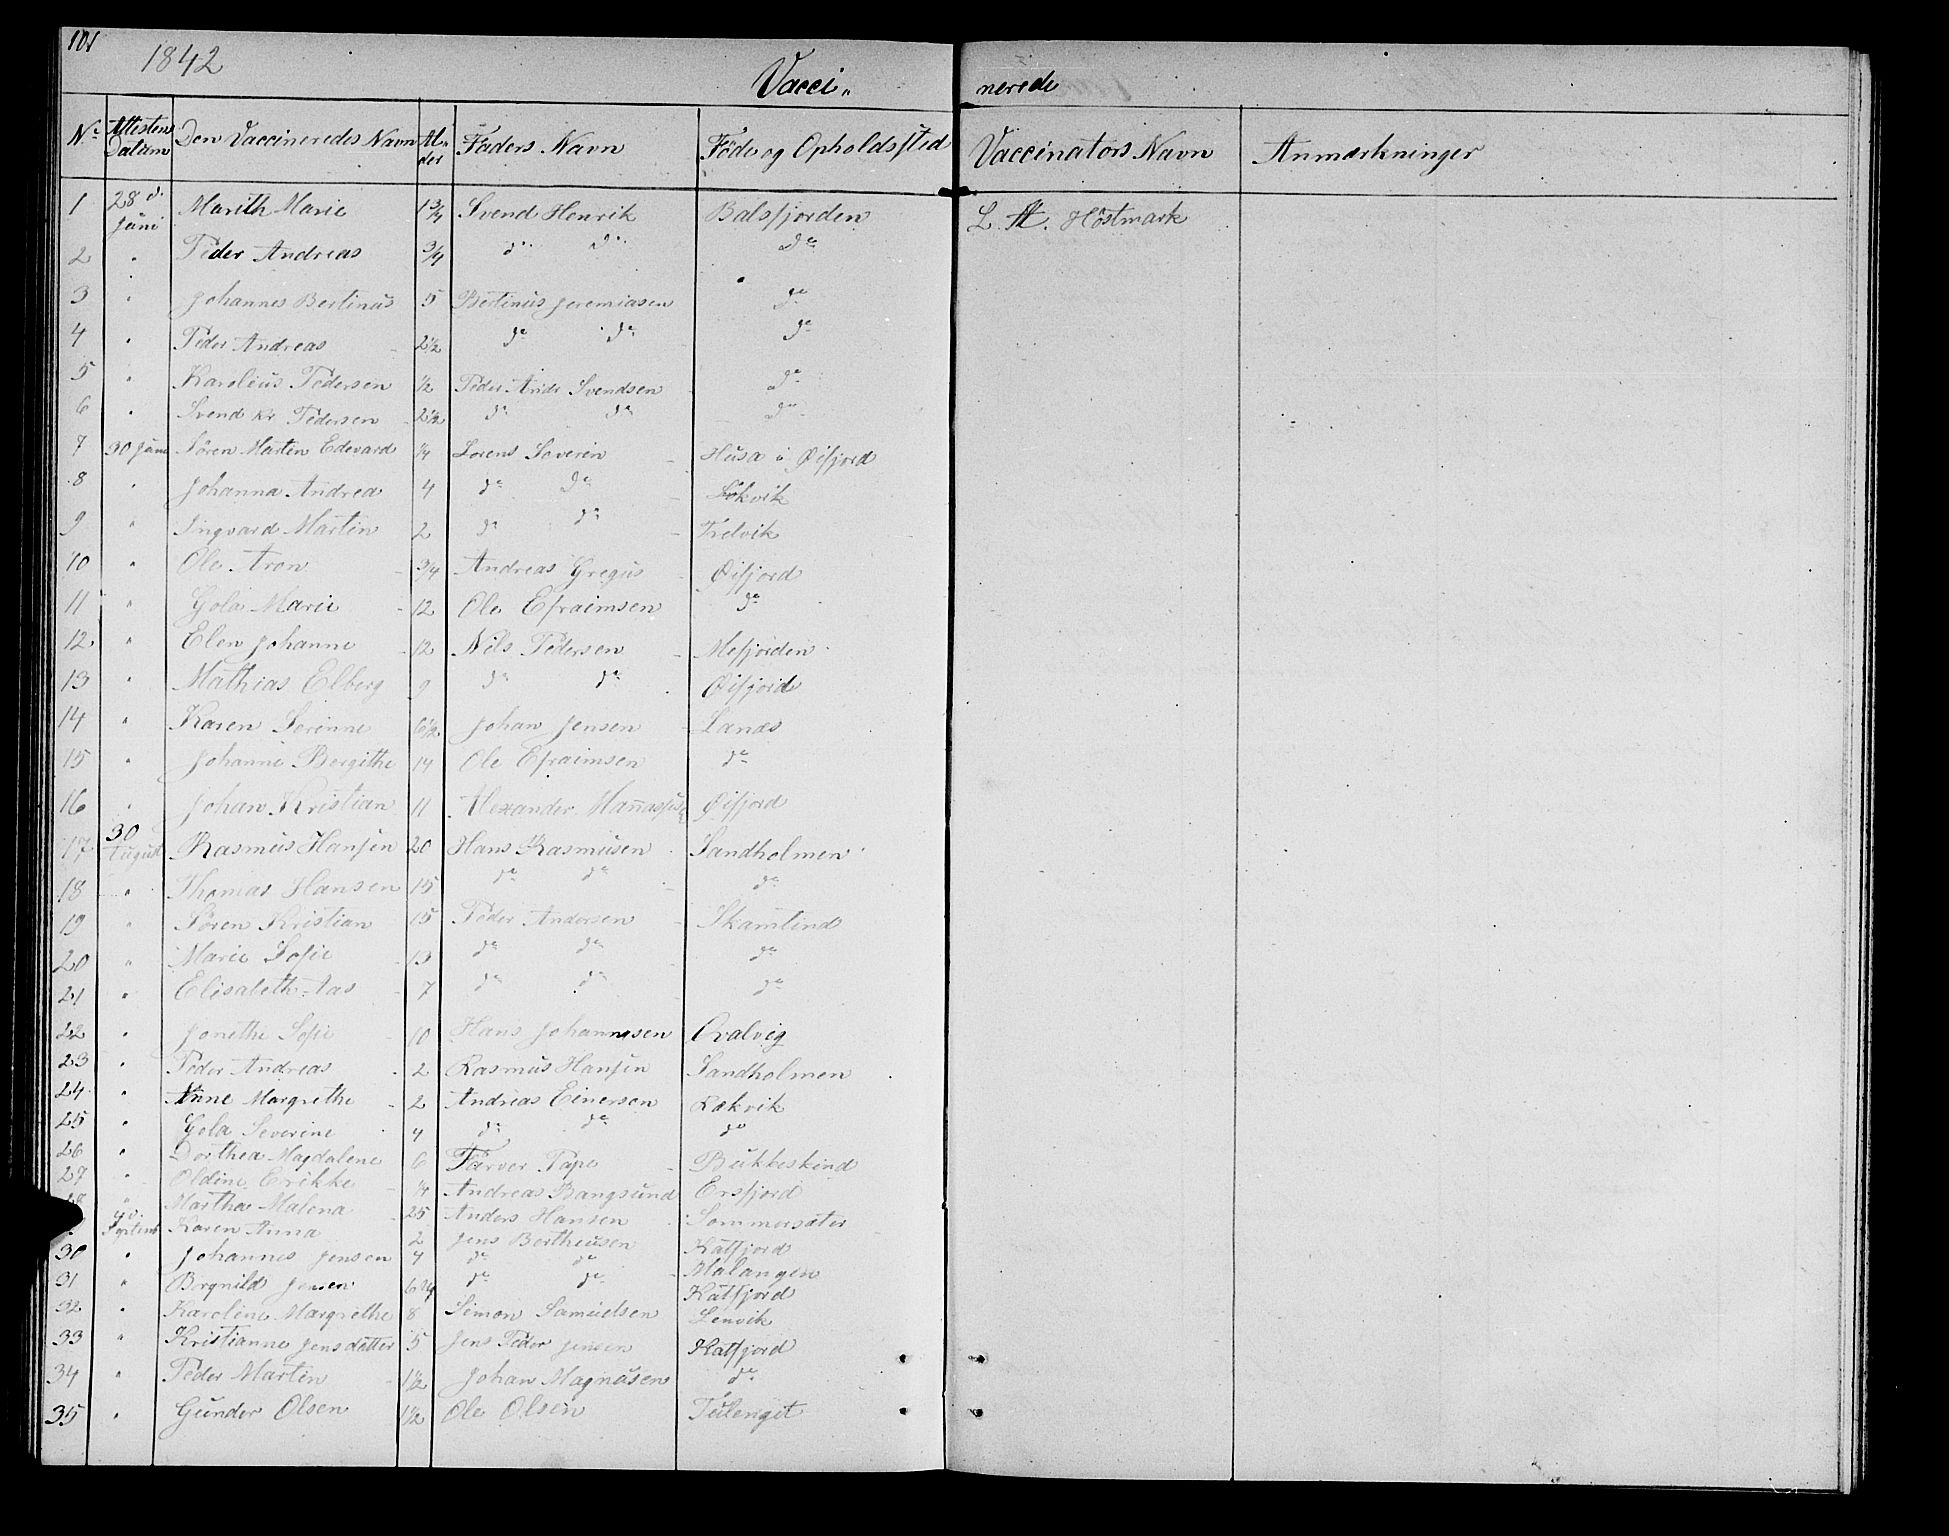 101
1842
Vacci„ nerede
No Attestens Datum Den Vaccineredes Navn Al„der Faders Navn Föde og Opholdssted Vaccinators Navn Anmærkninger
1 28 d. Juni Marith Marie 1¾ Svend Henrik Balsfjorden L. A. Höstmark
2 " Peder Andreas ¾ do do do
3 " Johannes Bertinus 5 Bertinus Jeremiasen do
4 " Peder Andreas 2½ do do do
5 " Karelius Pedersen ½ Peder Andr Svendsen do
6 " Svend Kr Pedersen 2½ do do do
7 30 Juni Sören Martin Edevard ¼ Lorens Severin Husa i Øifjord
8 " Johanna Andrea 4 do do
9 " Ingvard Martin 2 do do Trelvik
10 " Ole Aron ¾ Andreas Gregus Øifjord
11 " Gola Marie 12 Ole Efraimsen do
12 " Elen Johanne 12 Nils Pedersen Mefjorden
13 " Mathias Elberg 9 do do Øifjord
14 " Karen Serinne 6½ Johan Jensen Lanæs
15 " Johanne Bergithe 14 Ole Efraimsen do
16 " Johan Kristian 11 Alexander Øifjord
17 30 August Rasmus Hansen 20 Hans Rasmusen Sandholmen
18 " Thomas Hansen 15 do do do
19 " Sören Kristian 15 Peder Andersen Skamtind
20 " Marie Sofie 13 do do do
21 " Elisabeth Aas 7 do do do
22 " Jonethe Sofie 10 Hans Johannesen Qvalvig
23 " Peder Andreas 2 Rasmus Hansen Sandholmen
24 " Anne Margrethe 2 Andreas Einersen Rakvik
25 " Gola Severine 4 do do do
26 " Dorthea Magdalene 6 Farver Pape Bukkeskind
27 " Oldine Erikke ¼ Andreas Bangsund Ersfjord
28 " Martha Malena 25 Anders Hansen Sommersæter
9 d. Septenb Karen Anna 2 Jens Bertheusen Katfjord
30 " Johannes Jensen 4 do do Malangen
31 " Brynild Jensen 6 do do Katfjord
32 " Karoline Margrethe 8 Simon Samuelsen Lenvik
33 " Kristianne Jensdatter 5 Jens Peder Jensen Katfjord
34 " Peder Martin 1½ Johan Magnusen do
35 " Gunder Olsen 1½ Ole Olsen Tulenget